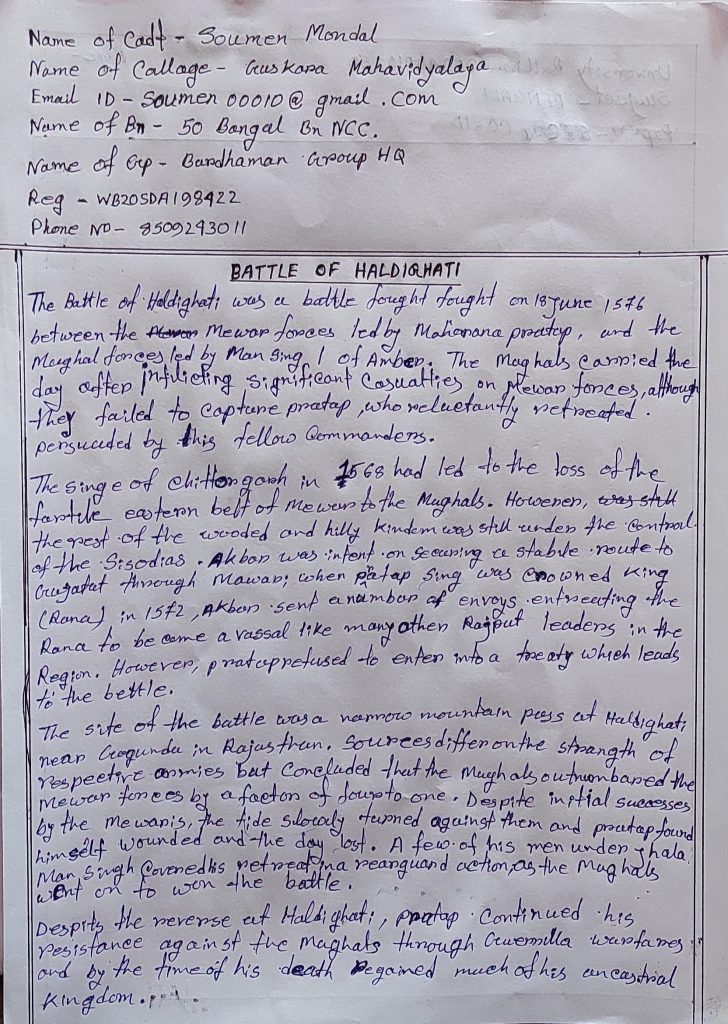 Name of Cadt - Soumen Mondal
Name of Callage - Guskara Mahavidyalaya
Email ID - Soumen00010@gmail.com
Name of Bn - 50 Bangal Bn NCC.
Name of Gp - Bardhaman Group HQ
Reg - WB20SDA198422
Phone NO - 8509243011
BATTLE OF HALDIGHATI
The Battle of Haldighati was a battle fought fought on 18 June 1576
between the Mewar forces led by Maharana pratap, and the
Maughal forces led by Man Sing 1 of Amber. The Mughals carried the
day after Inflicting significant Casualties on Mewar forces, although
they failed to capture pratap, who reluctantly retreated.
persuaded by this fellow Commanders.
The Singe of chittorgarh in 1568 had led to the loss of the
fartile eastern belt of Mewar to the Mughals. However, was still
the rest of the wooded and hilly kindem was still under the Control
of the Sisodias. Akbar was intent on securing a stable route to
Gujatat through Mawar; when patap Sing was Crowned King
(Rana) in 1572, Akbar sent a numbar of envoys entreating the
Rana to be came a vassal like many other Rajput leaders in the
Region. However, pratap refused to enter into a treaty which leads
to the bettle.
The site of the battle was a narrow mountain pass at Haldighati
near Gogunda in Rajasthan. Sources differ on the strangth of
respective armies but Concluded that the Mughals outnumbared the
Mewar forces by a factor of four to one. Despite initial successes
by the Mewaris, the tide slowaly turned against them and pratap found
himself wounded and the day lost. A few of his men under jhala
Man Singh Covered his retreat in a rearguard action, as the Mughals
went on to won the battle.
Despits the reverse at Haldighati, pratap Continued his
resistance against the Maghals through Guerrilla warfares
and by the time of his death Regained much of his ancastrial
Kingdom.....